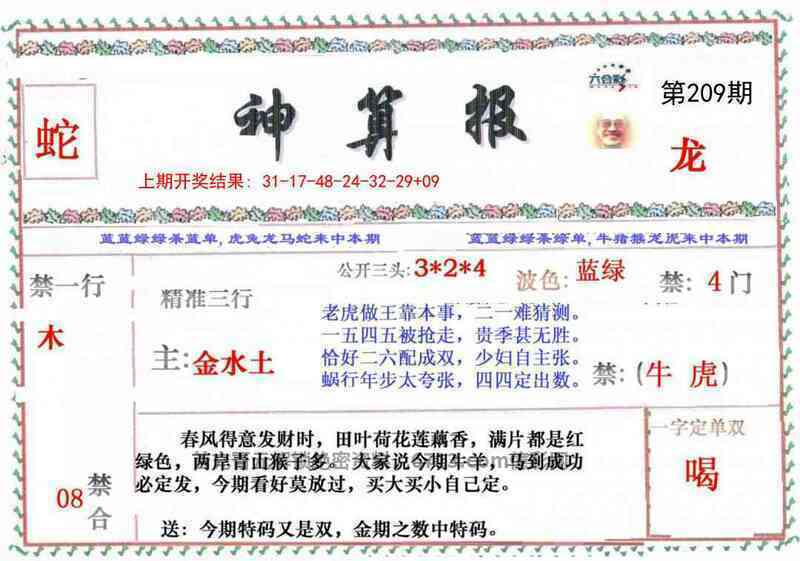 六合彩
第209期
蛇
神算报
龙
上期开奖结果: 31-17-48-24-32-29+09
蓝蓝绿绿条蓝单,虎兔龙马蛇来中本期
蓝绿绿绿条绿单,牛猪猴龙虎来中本期
禁一行
木
精准三行
主:金水土
公开三头:3*2*4
波色:蓝绿
禁: 4门
老虎做王靠本事,二一难猜测。
一五四五被抢走,贵季甚无胜。
恰好二六配成双,少妇自主张。
蜗行年步太夸张,四四定出数。
禁:(牛 虎)
08禁合
春风得意发财时,田叶荷花莲藕香,满片都是红
绿色,两岸青山猴子多。大家说今期牛羊,马到成功
必定发,今期看好莫放过,买大买小自己定。
送:今期特码又是双,金期之数中特码。
一字定单双
喝